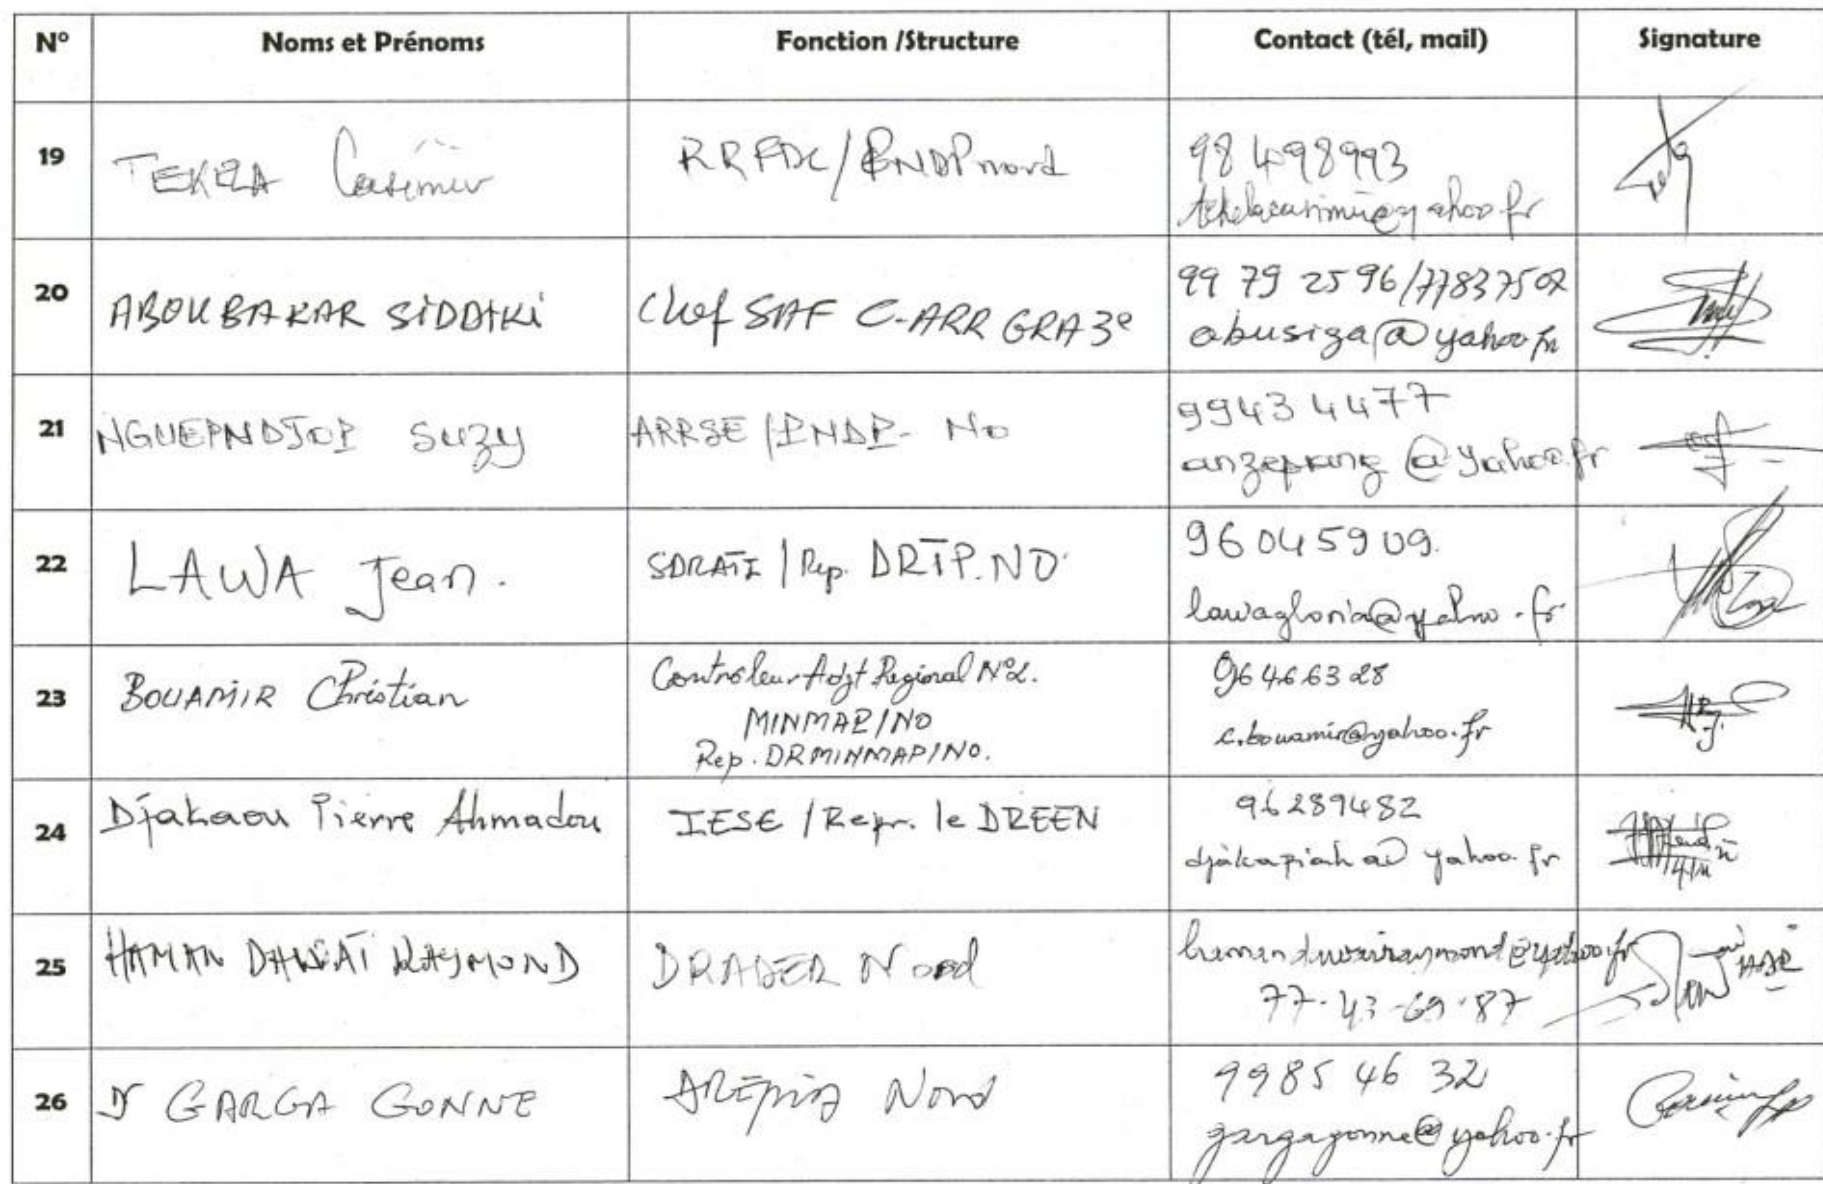 N° Noms et Prénoms Fonction /Structure Contact (tél, mail) Signature
19 TEKELA Casimir RRFDC/PNDP nord 98 498993
@yahoo.fr
20 ABOUBAKAR SIDDIKI Chef SAF C-ARR GRA 3e 99 79 25 96/77837502
abusiga@yahoo.fr
21 NGUEPNDJOP Suzy ARRSE/PNDP- No 9943 4477
anzepang@yahoo.fr
22 LAWA Jean. SDRATI / Rep. DRTP.NO 96045909.
lawagloria@yahoo.fr
23 BOUAMIR Christian Contrôleur Adjt Régional N°2. 96466328
MINMAP/NO c.bouamir@yahoo.fr
Rep. DRMINMAP/NO.
24 Djakaou Pierre Ahmadou IESE / Repr. le DREEN 96289482
djakapiah@yahoo.fr
25 HAMAN RAYMOND DRADER Nord @yahoo.fr
77-43-69-87
26 Dr GARGA GONNE Nord 9985 46 32
gargagonne@yahoo.fr